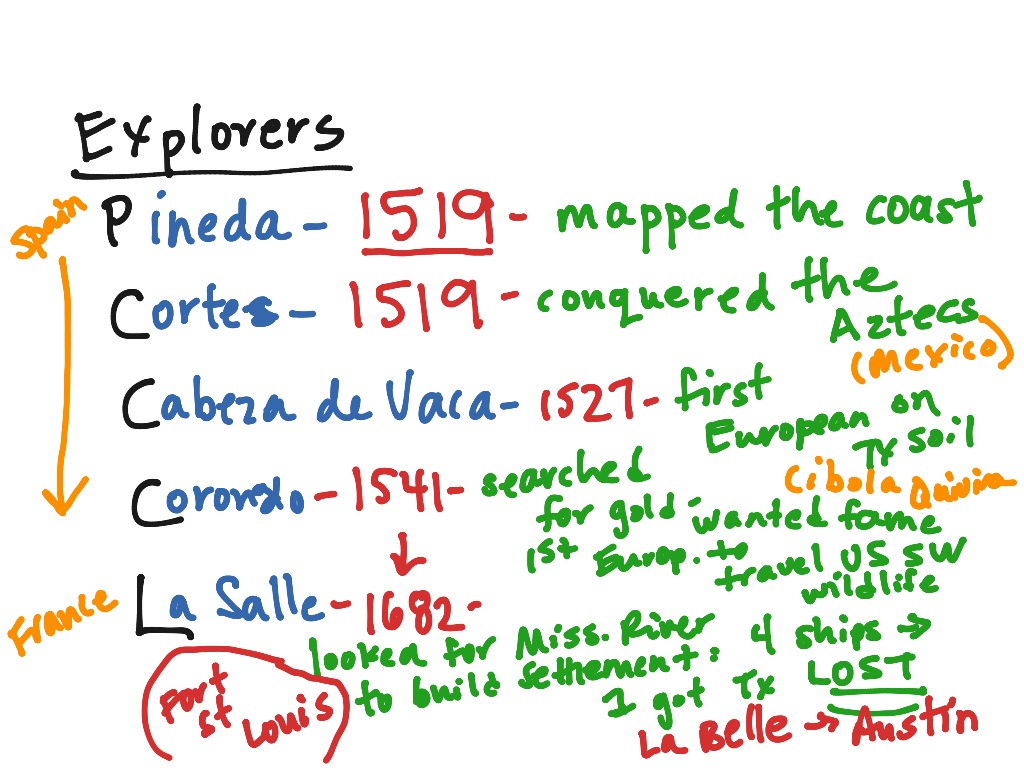 Explorers
Spain
Pineda - 1519 - mapped the coast
Cortes - 1519 - conquered the
Aztecs
(Mexico)
Cabeza de Vaca - 1527 - first
European on
TX soil
Coronado - 1541 - searched
for gold wanted fame
Cibola Quivira
1st Europ. to
travel US SW
wildlife
France
La Salle - 1682 -
looked for Miss. River
to build settlement:
4 ships →
1 got TX LOST
(Fort
St Louis)
La Belle → Austin